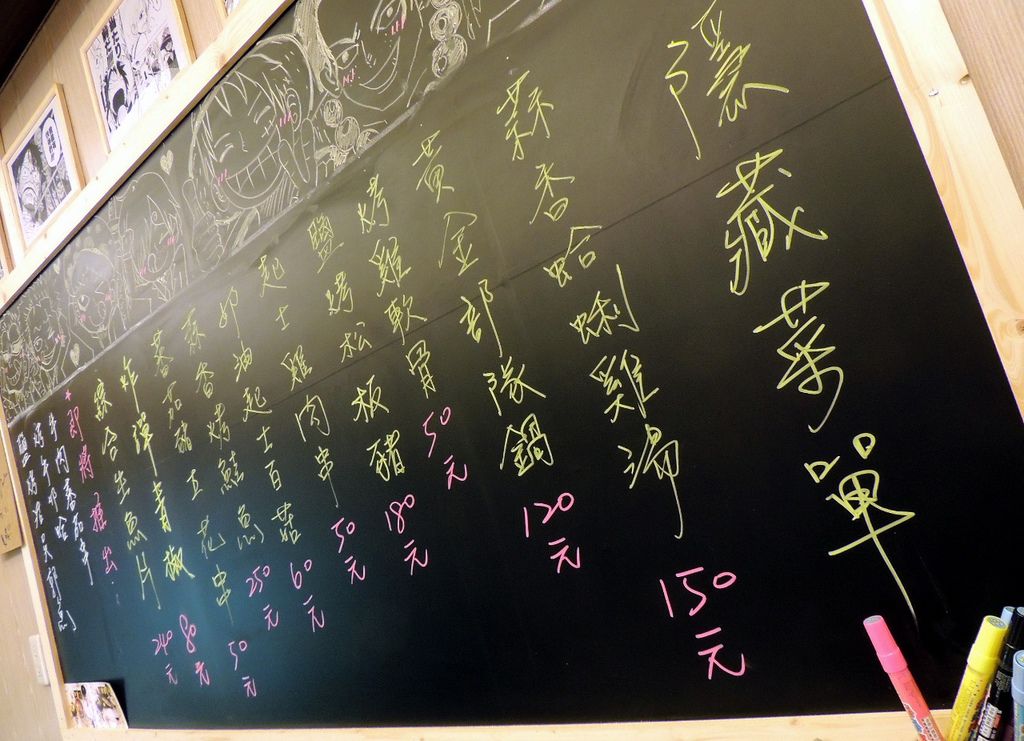 隱藏菜單
蒜香蛤蜊雞湯 150元
黃金部隊鍋 120元
烤雞軟骨 50元
鹽烤松板豬 180元
起士雞肉串 50元
奶油起士百菇 60元
蒜香烤鮭魚 250元
蕃茄豬五花串 50元
炸彈青椒 80元
綜合生魚片 240元
*即將推出:
牛肉蕃茄串